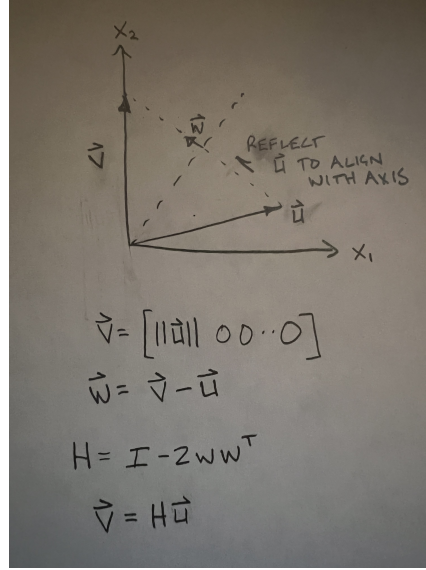 X₂
w⃗
REFLECT
v⃗
u⃗ TO ALIGN
WITH AXIS
u⃗
X₁
v⃗ = [||u⃗|| 0 0 ·· 0]
w⃗ = v⃗ − u⃗
H = I − 2wwᵀ
v⃗ = Hu⃗